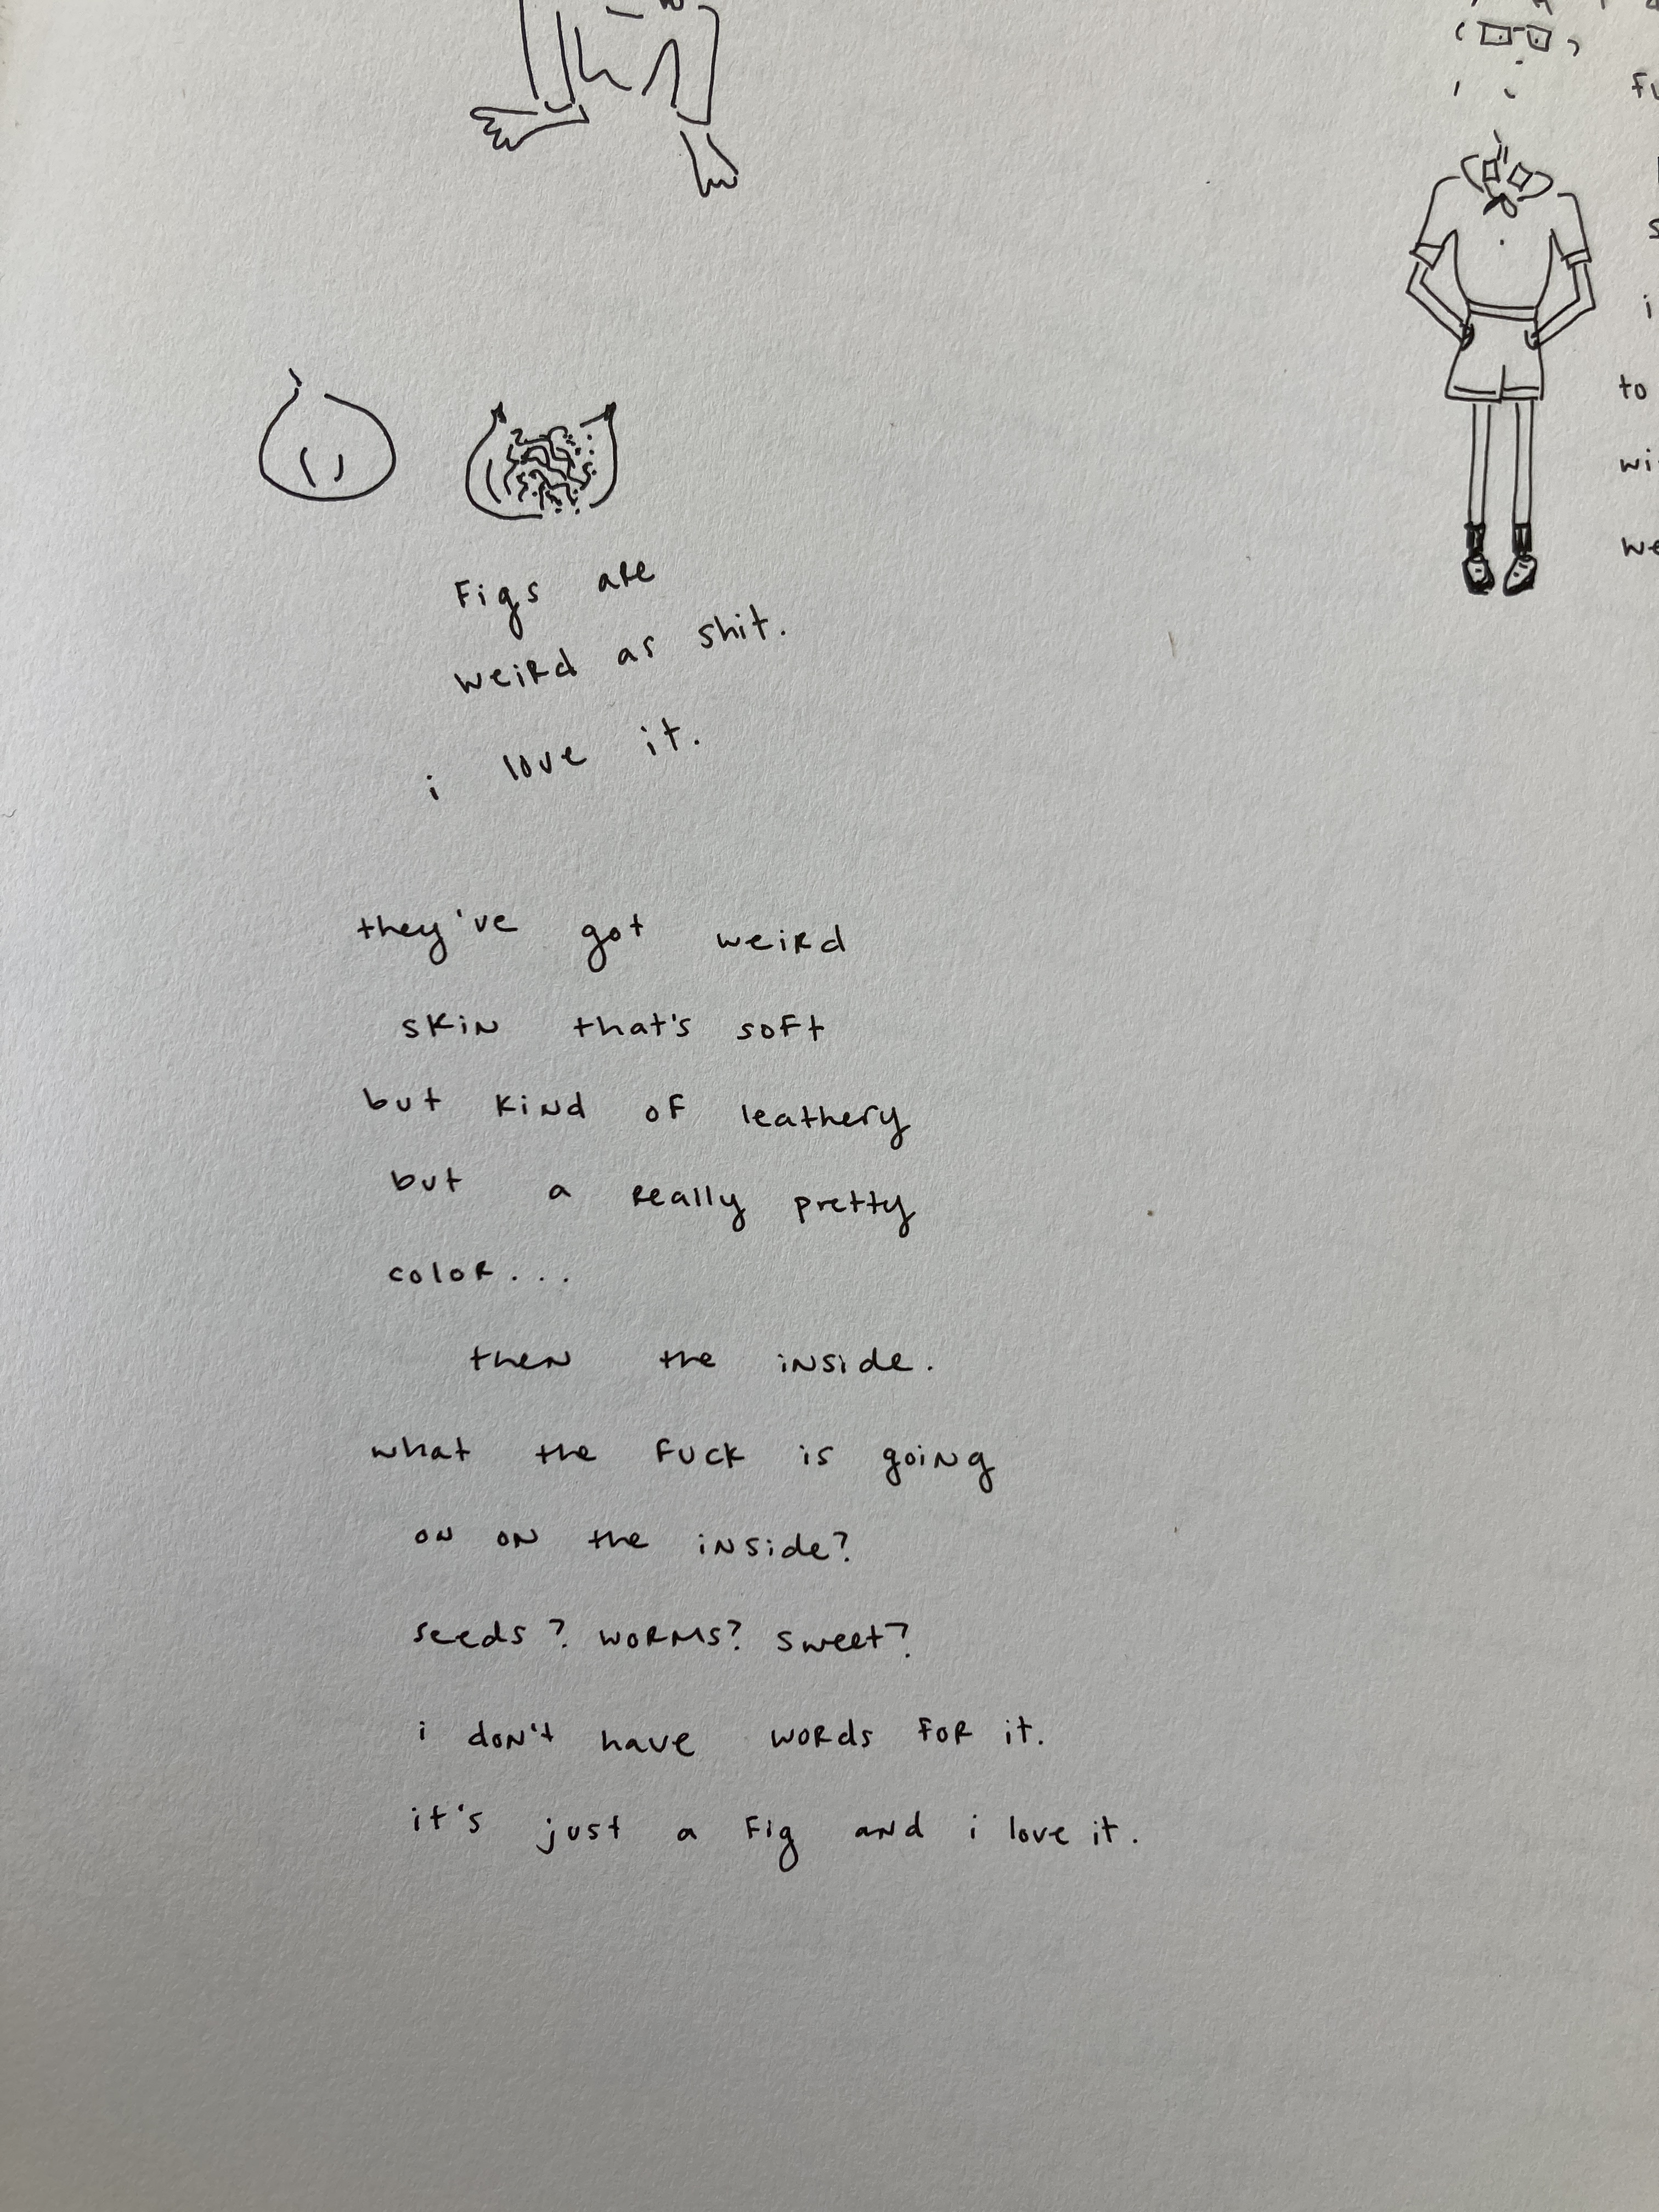 Figs are
weird as shit.
i love it.
they've got weird
skin that's soft
but kind of leathery
but a really pretty
color...
then the inside.
what the fuck is going
on on the inside?
seeds? worms? sweet?
i don't have words for it.
it's just a fig and i love it.
to